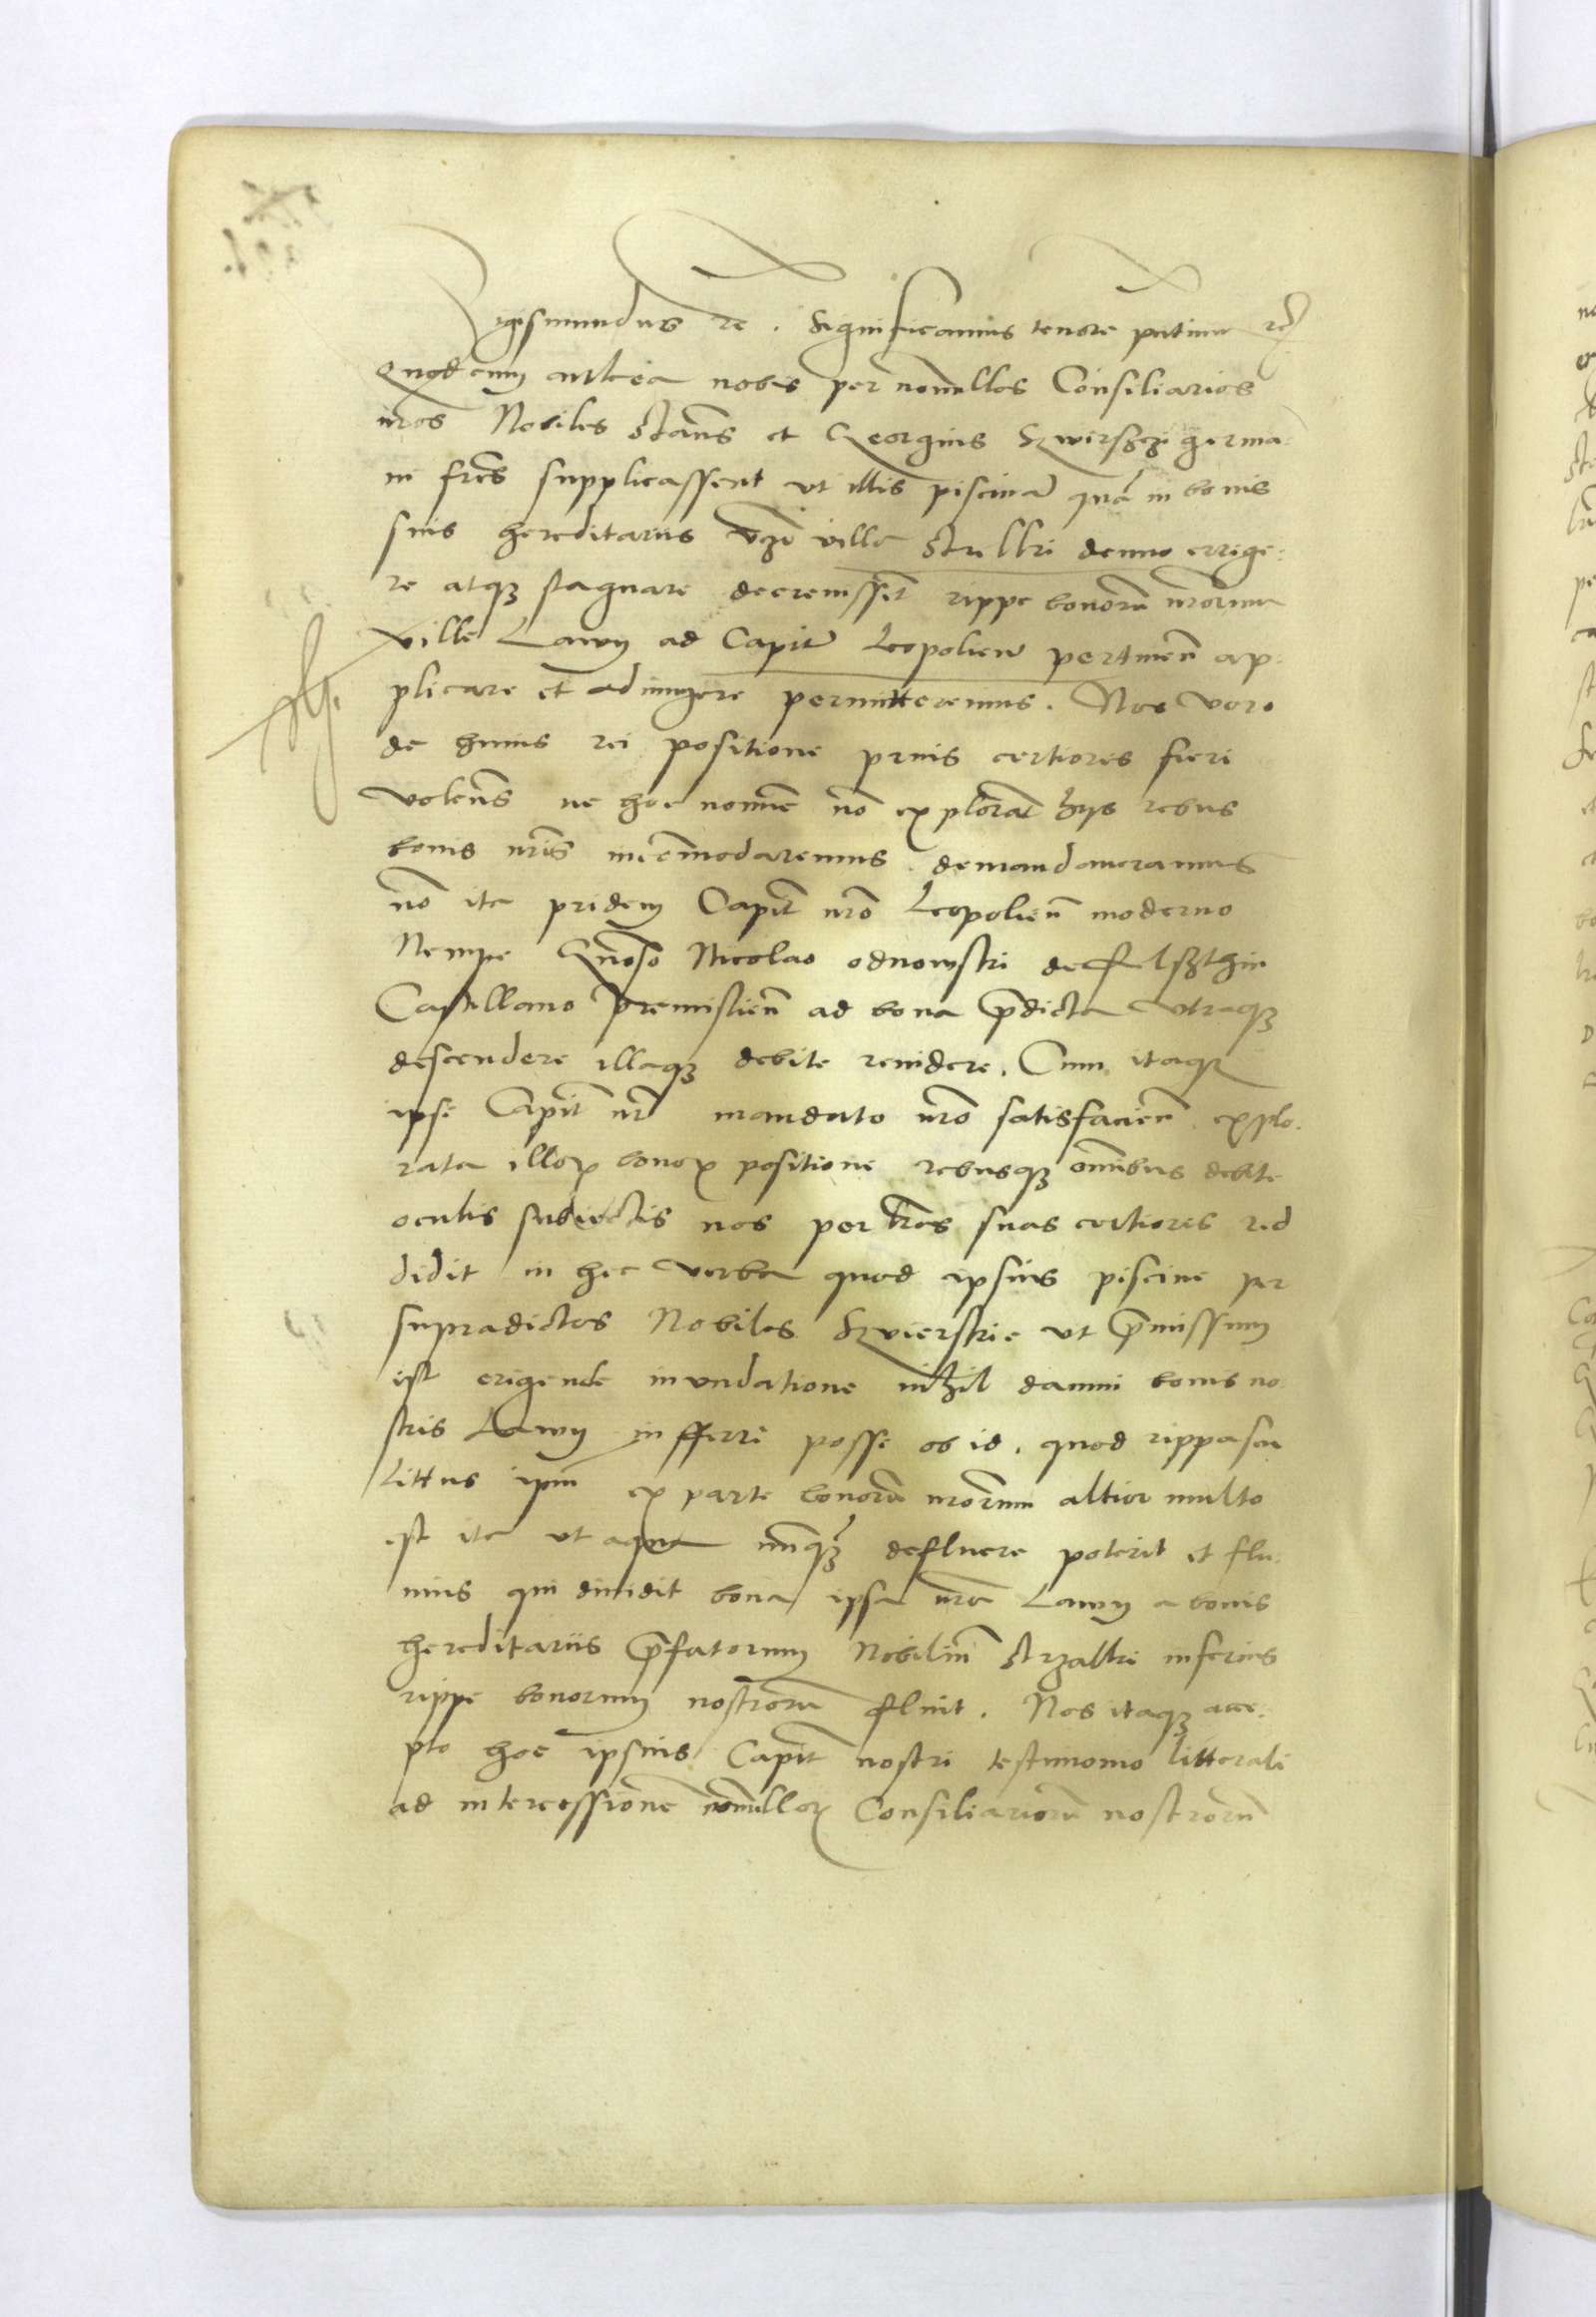 Sigismundus rc. Significamus tenore pntium rc
Quod cum antea nobis per nonnullos Consiliarios
nros Nobiles Stans et Georgius Szwirszczi germa:
ni frēs supplicassent ut illis piscinā quā in bonis
suis hereditariis vzt villa Strelki denuo errige:
re atqz stagnare decrevissēt rippe bonorū nrorum
ville Lawy ad Capit Leopolien pertinen̄ ap:
plicare et adiungere permitteremus. Nos vero
de huius rei positione prius certiores fieri
volen̄s ne hoc nomine nō explorat hijs rebus
bonis nrīs incōmodaremus demandaveramus
nō ita pridem Capit nrō Leopolien̄ moderno
Nempe Gnōso Nicolao odnowski de Felszthin
Castellano Premislien̄ ad bona p̄dicta utraqz
descendere illaqz debite revidere. Cum itaqz
ipse Capit nr̄ mandato nrō satisfacien̄ explo:
rata illorꝫ bonorꝫ positione rebusqz omībus debite
oculis subiectis nos per lrās suas certiores red
didit in hec verba quod ipsius piscine per
supradictos Nobiles Szvierskie ut p̄missum
est erigende inundatione nihil damni bonis no
stris Lawy inferri posse ob id. quod rippa seu
Littus ipm̄ ex parte bonorū nrorum altior multo
est ita ut aqua nunqz̄ defluere poterit et flu:
vius qui dividit bona ipsa nrā Lawy a bonis
hereditariis p̄fatorum Nobiliū Strzalki inferius
rippe bonorum nostrorū fluit. Nos itaqz acce:
pto hoc ipsius Capit nostri testimonio litterali
ad intercessionē nonnullorꝫ Consiliariorū nostrorū